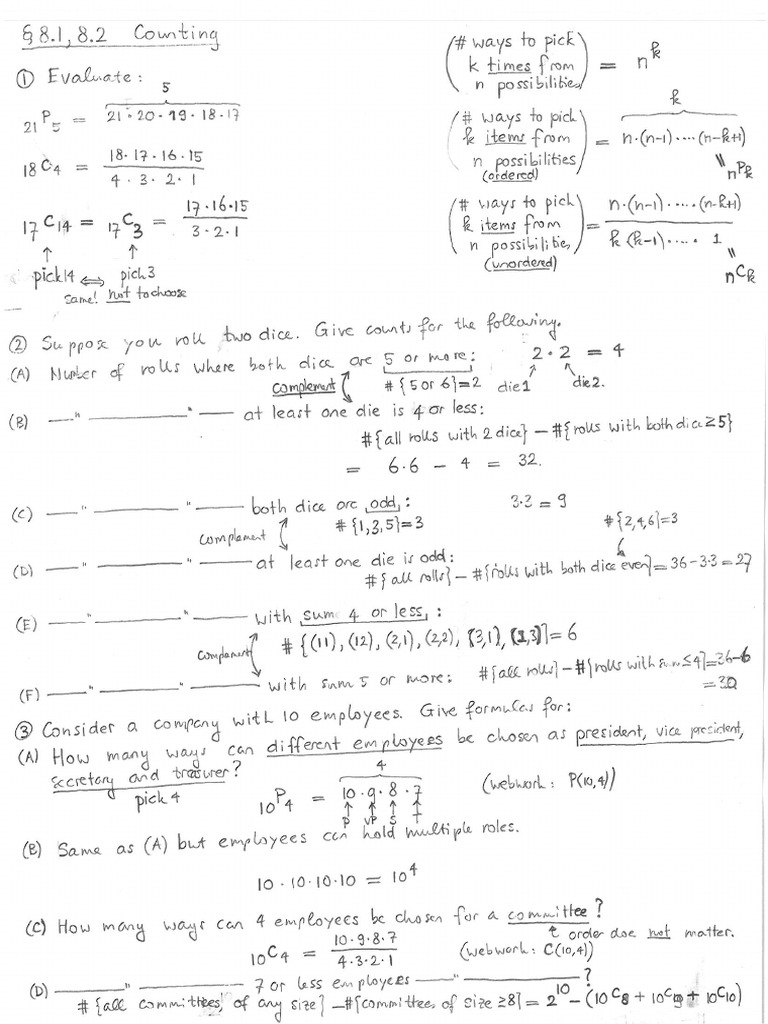 § 8.1, 8.2 Counting
① Evaluate:
21P5 = 21·20·19·18·17 (5)
18C4 = 18·17·16·15 / 4·3·2·1
17C14 = 17C3 = 17·16·15 / 3·2·1
↑ ↑
pick 14 ⟺ pick 3
same! not to choose
(# ways to pick k times from n possibilities) = n^k
(# ways to pick k items from n possibilities (ordered)) = n·(n-1)·····(n-k+1) (k) = nPk
(# ways to pick k items from n possibilities (unordered)) = n·(n-1)·....·(n-k+1) / k(k-1)····· 1 = nCk
② Suppose you roll two dice. Give counts for the following.
(A) Number of rolls where both dice are 5 or more: 2·2 = 4
complement #{5 or 6}=2 die 1 die 2.
(B) —"— —"— at least one die is 4 or less:
#{all rolls with 2 dice} − #{rolls with both dice ≥5}
= 6·6 − 4 = 32.
(C) —"— —"— both dice are odd: 3·3 = 9
complement #{1,3,5}=3 #{2,4,6}=3
(D) —"— —"— at least one die is odd:
#{all rolls} − #{rolls with both dice even} = 36 − 3·3 = 27
(E) —"— —"— with sum 4 or less:
complement #{(11), (12), (2,1), (2,2), (3,1), (1,3)} = 6
(F) —"— —"— with sum 5 or more: #{all rolls} − #{rolls with sum ≤4} = 36−6
= 30
③ Consider a company with 10 employees. Give formulas for:
(A) How many ways can different employees be chosen as president, vice president,
secretary and treasurer?
pick 4 10P4 = 10·9·8·7 (4) (webwork: P(10,4))
P VP S T
(B) Same as (A) but employees can hold multiple roles.
10·10·10·10 = 10^4
(C) How many ways can 4 employees be chosen for a committee?
↑ order doe not matter.
10C4 = 10·9·8·7 / 4·3·2·1 (webwork: C(10,4))
(D) —"— 7 or less employees —"— ?
#{all committees, of any size} − #{committees of size ≥8} = 2^10 − (10C8 + 10C9 + 10C10)